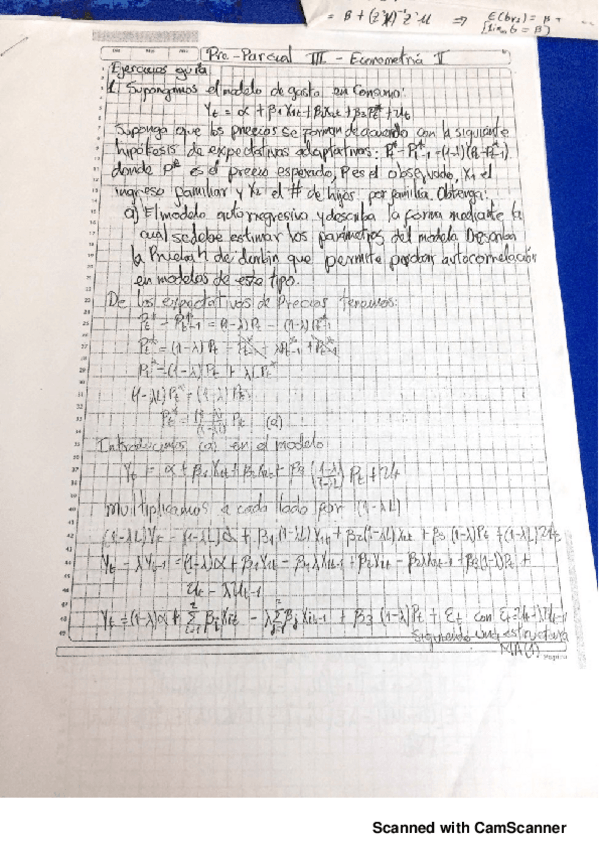 = B + (Z'X)⁻¹Z'u ⇒ E(b) = B +
Pre-Parcial III - Econometría II
Ejercicios guía
1. Supongamos el modelo de gasto en consumo:
Yt = α + β1X1t + β2X2t + β3Pt* + Ut
Suponga que los precios se forman de acuerdo con la siguiente
hipótesis de expectativas adaptativas: Pt* - Pt-1* = (1-λ)(Pt - Pt-1*)
donde P* es el precio esperado, P es el observado, X1 el
ingreso familiar y X2 el # de hijos por familia. Obtenga:
a) El modelo autorregresivo y describa la forma mediante la
cual se debe estimar los parámetros del modelo. Describa
la Prueba h de durbin que permite probar autocorrelación
en modelos de este tipo.
De las expectativas de Precios tenemos:
Pt* - Pt-1* = (1-λ)Pt - (1-λ)Pt-1*
Pt* = (1-λ)Pt - Pt-1* + λPt-1* + Pt-1*
Pt* = (1-λ)Pt + λLPt*
(1-λL)Pt* = (1-λ)Pt
Pt* = (1-λ)/(1-λL) Pt (a)
Introducimos (a) en el modelo
Yt = α + β1X1t + β2X2t + β3 ((1-λ)/(1-λL)) Pt + Ut
Multiplicamos a cada lado por (1-λL)
(1-λL)Yt = (1-λL)α + β1(1-λL)X1t + β2(1-λL)X2t + β3(1-λ)Pt + (1-λL)Ut
Yt - λYt-1 = (1-λ)α + β1X1t - β1λX1t-1 + β2X2t - β2λX2t-1 + β3(1-λ)Pt +
Ut - λUt-1
Yt = (1-λ)α + Σ βiXit - λ Σ βjXit-1 + β3(1-λ)Pt + Et con Et = Ut - λUt-1
Siguiendo una estructura
MA(1)
Scanned with CamScanner